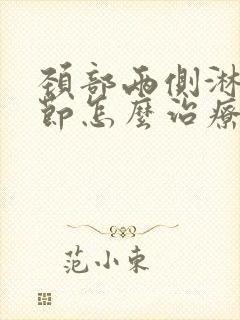 頚部兩側淋
節怎麼治療
范小東